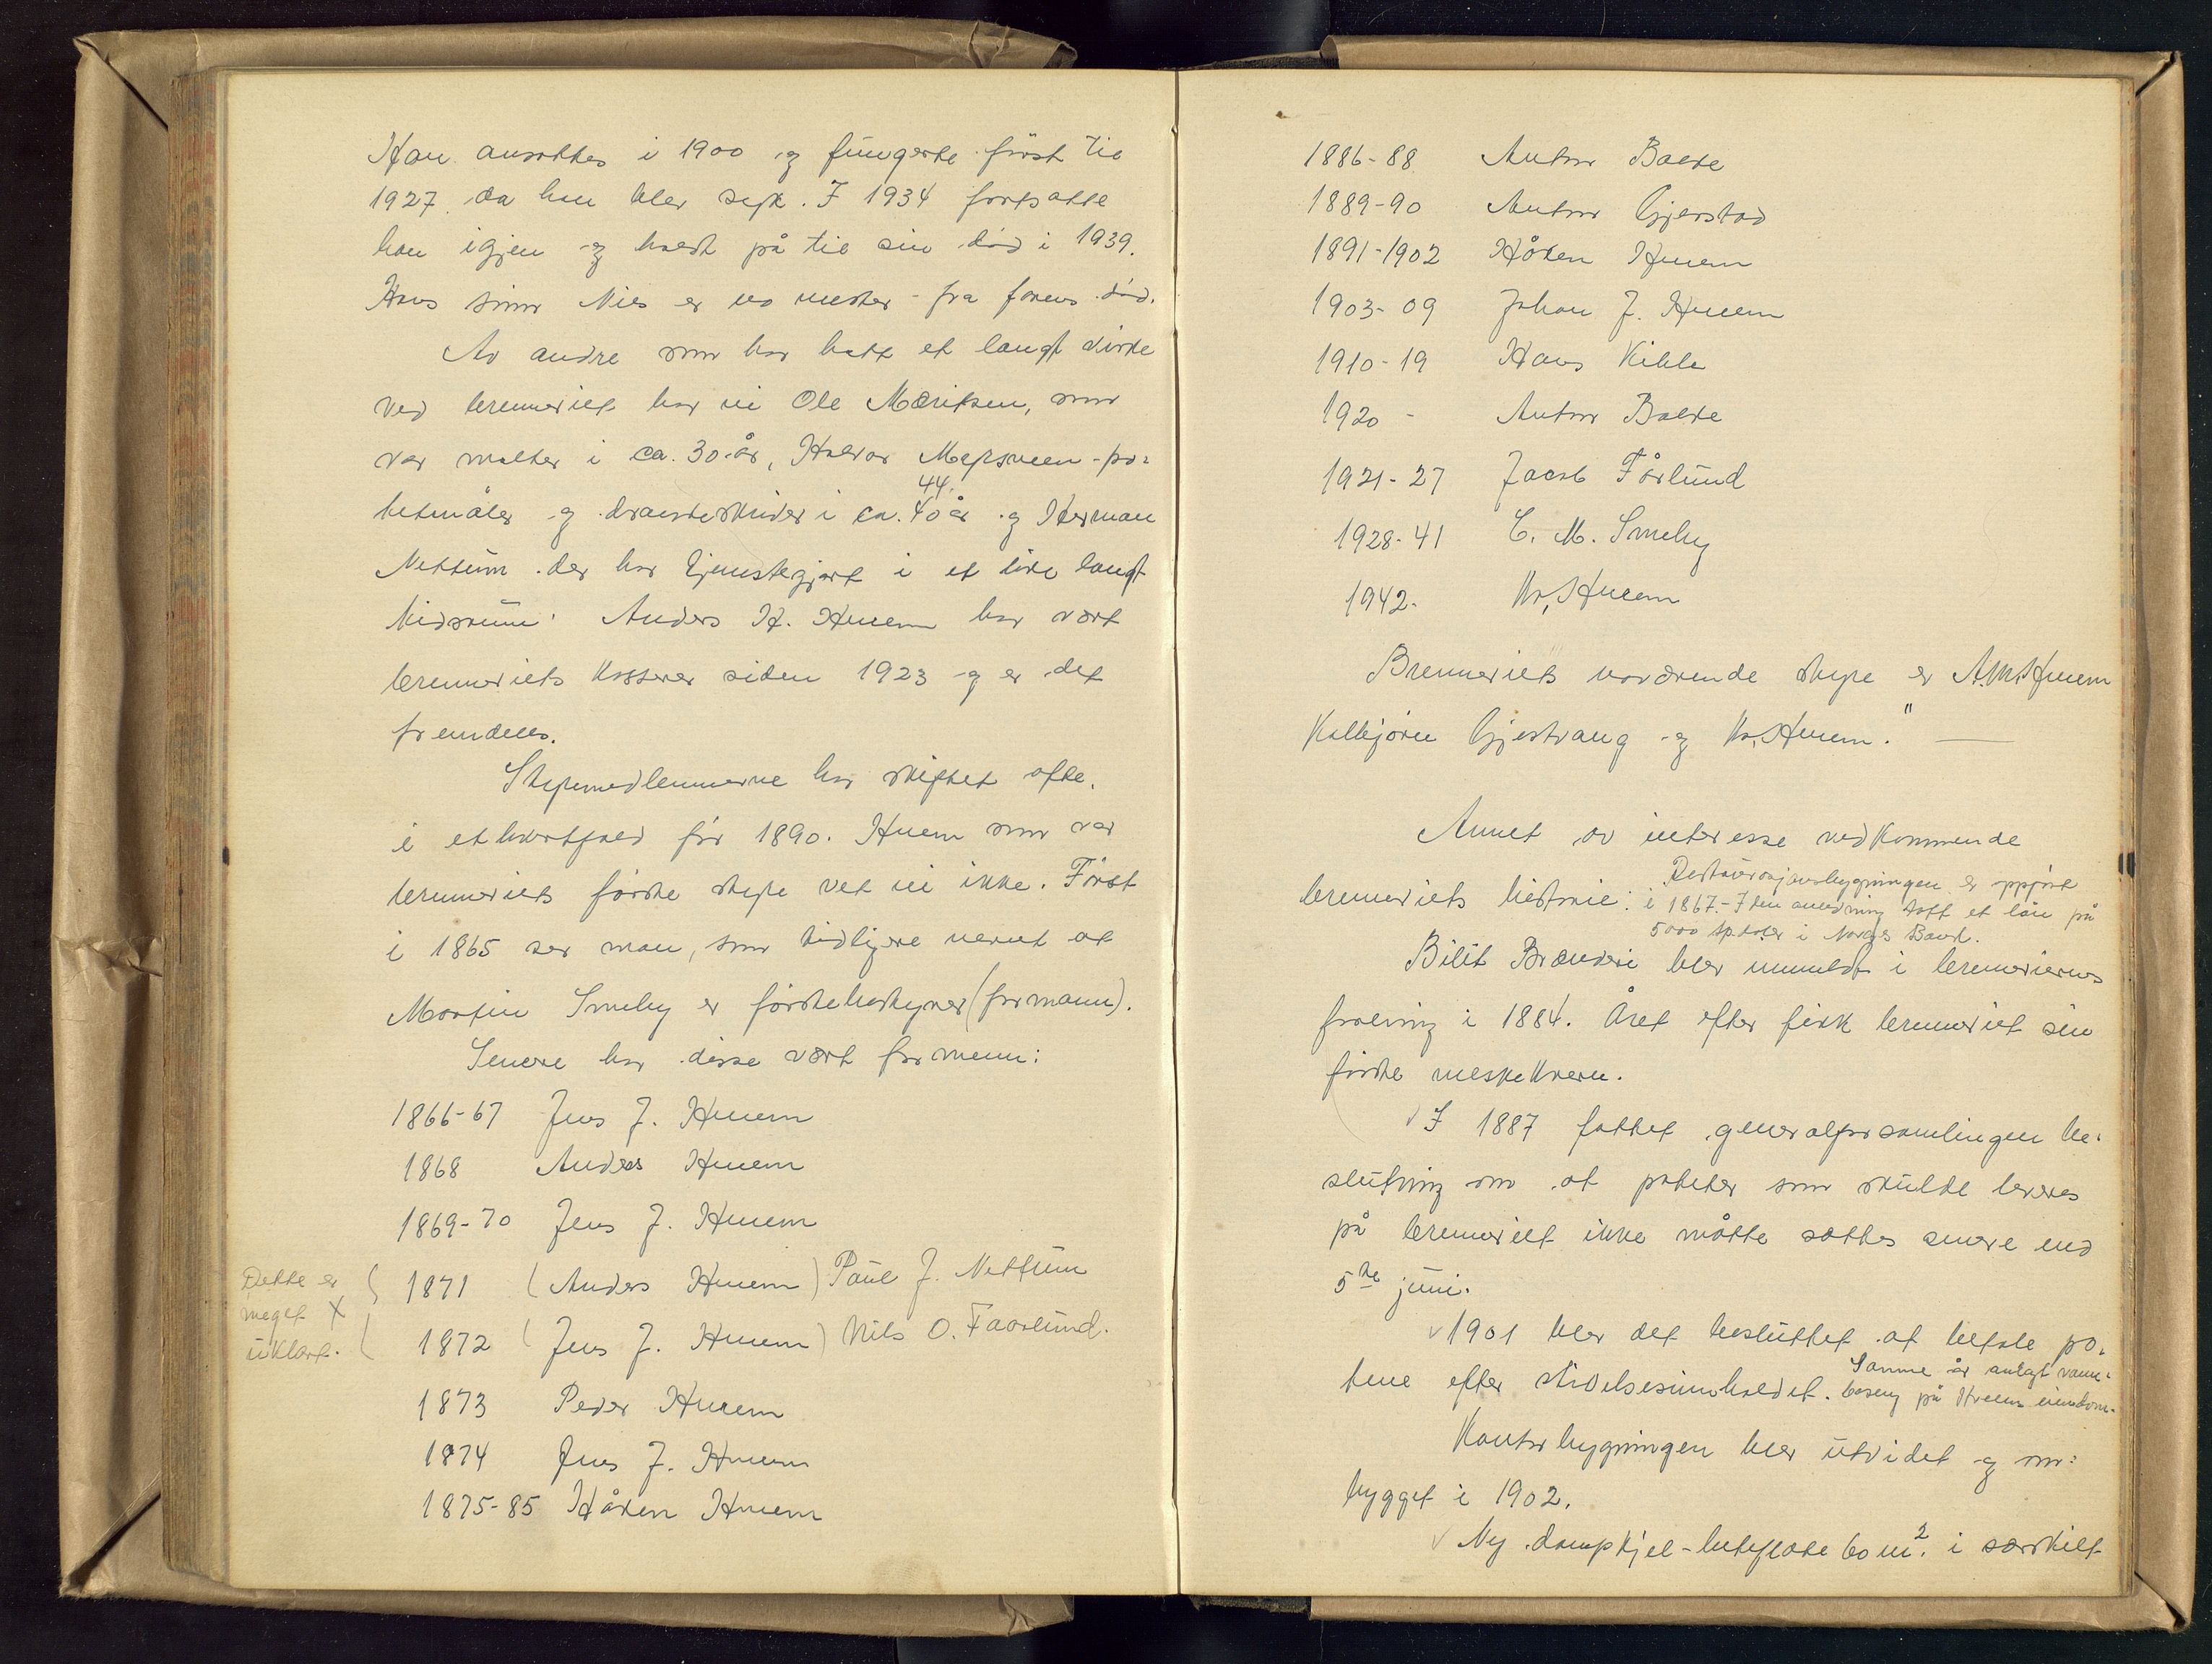 Han ansattes i 1900 og fungerte først til
1927 da han blev syk. I 1934 fortsatte
han igjen og holdt på til sin død i 1939.
Hans sønn Nils er no mester fra farens død.
Av andre som har hatt et langt virke
ved brenneriet har vi Ole Mauritsen, som
var malter i ca. 30 år, Halvor po-
tetmåler og i ca. 40 år og Herman
44
Nettum der har tjenestegjort i et like langt
tidsrum. Anders H. Huem har vært
brenneriets kasserer siden 1923 og er det
fremdeles.
Styremedlemmerne har skiftet ofte,
i ethvertfald før 1890. Hvem som var
brenneriets første styre vet vi ikke. Først
i 1865 ser man, som tidligere nevnt at
Martin Smeby er førstebestyrer (formann).
Senere har disse vært formenn:
1866-67 Jens J. Huem
1868 Anders Huem
1869-70 Jens J. Huem
Dette er
meget X
uklart.
1871 (Anders Huem) Paul J. Nettum
1872 (Jens J. Huem) Nils O. Faarlund.
1873 Peder Huem
1874 Jens J. Huem
1875-85 Håken Huem
1886-88 Anton Balke
1889-90 Anton Gjerstad
1891-1902 Håken Huem
1903-09 Johan J. Huem
1910-19 Hans Kihle
1920 - Anton Balke
1921-27 Jacob Fårlund
1928-41 C. M. Smeby
1942- Kr. Huem
Brenneriets nærværende styre er A. M. Huem
Kolbjørn Gjestvang og Kr. Huem." —
Annet av interesse vedkommende
brenneriets historie:
Restaurasjonsbygningen er oppført
i 1867. I den anledning tatt et lån på
5000 sp.daler i Norges Bank.
Bilit Brænderi blev innmeldt i brenneriernes
forening i 1884. Året efter fikk brenneriet sin
første meskekvern.
√ I 1887 fattet generalforsamlingen be-
slutning om at poteter som skulde leveres
på brenneriet ikke måtte sættes senere end
5te juni.
√ 1901 blev det besluttet at betale po-
tene efter stivelsesinnholdet.
Samme år anlagt vann-
baseng på Huems eiendom.
Kontorbygningen blev utvidet og om-
bygget i 1902.
√ Ny dampkjel - heteflate 60 m2. i særskilt